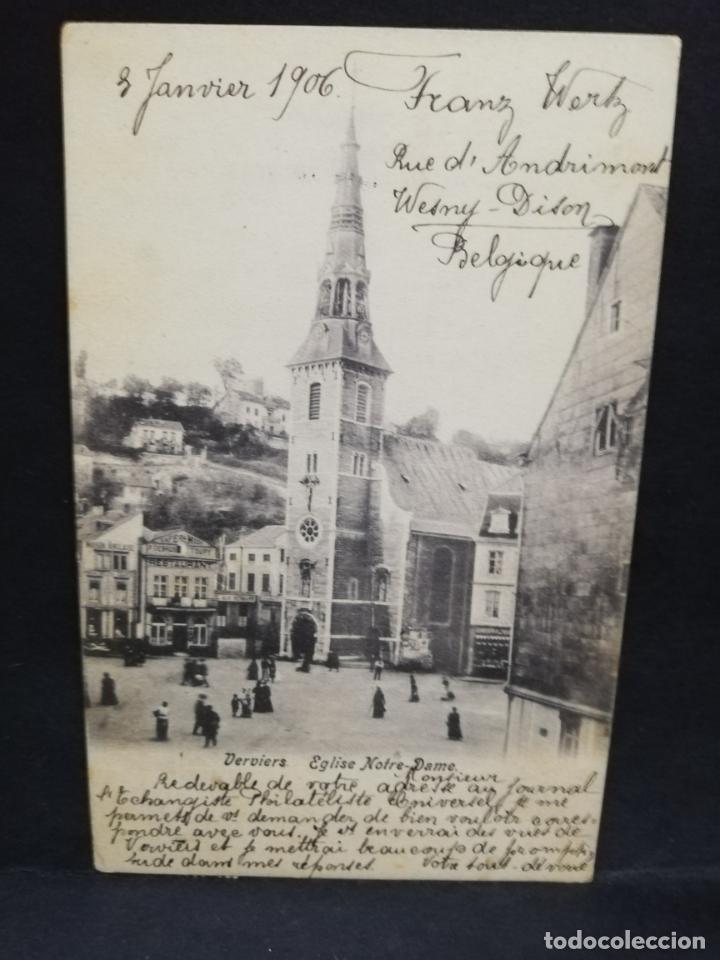 3 Janvier 1906.
Franz Wertz
Rue d'Andrimont
Wesny-Dison
Belgique
RESTAURANT
Verviers Eglise Notre-Dame.
Monsieur
Redevable de votre adresse au journal
l'Echangiste Philatéliste Universel, je me
permets de vs demander de bien vouloir corres-
pondre avec vous. Je vs enverrai des vues de
Verviers et je mettrai beaucoup de prompti-
tude dans mes réponses. Votre tout-dévoué
todocoleccion.net